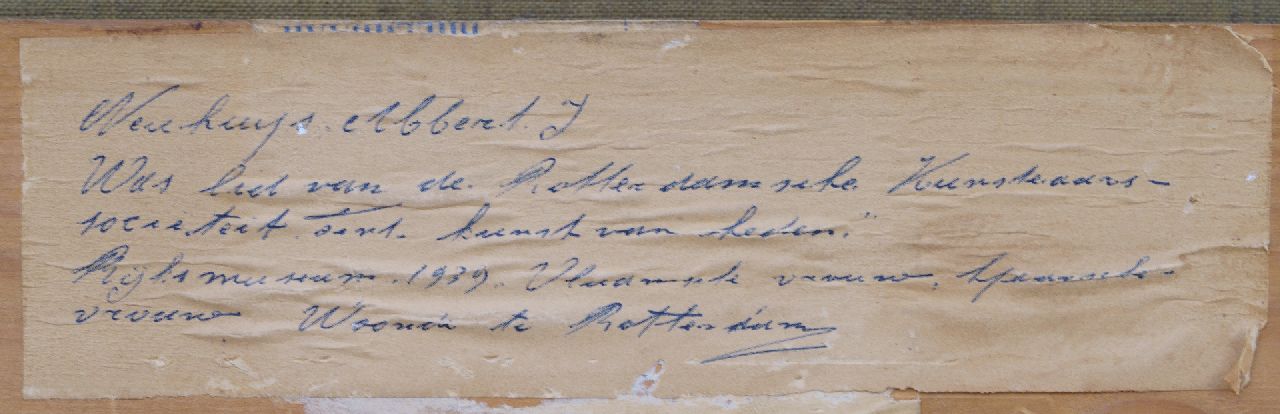 Neuhuys. Albert. J
Was lid van de Rotterdamsche Kunstenaars-
societeit kunst van heden."
Rijksmuseum. 1939. Vlaamsche vrouw. Spaansche-
vrouw Woonde te Rotterdam